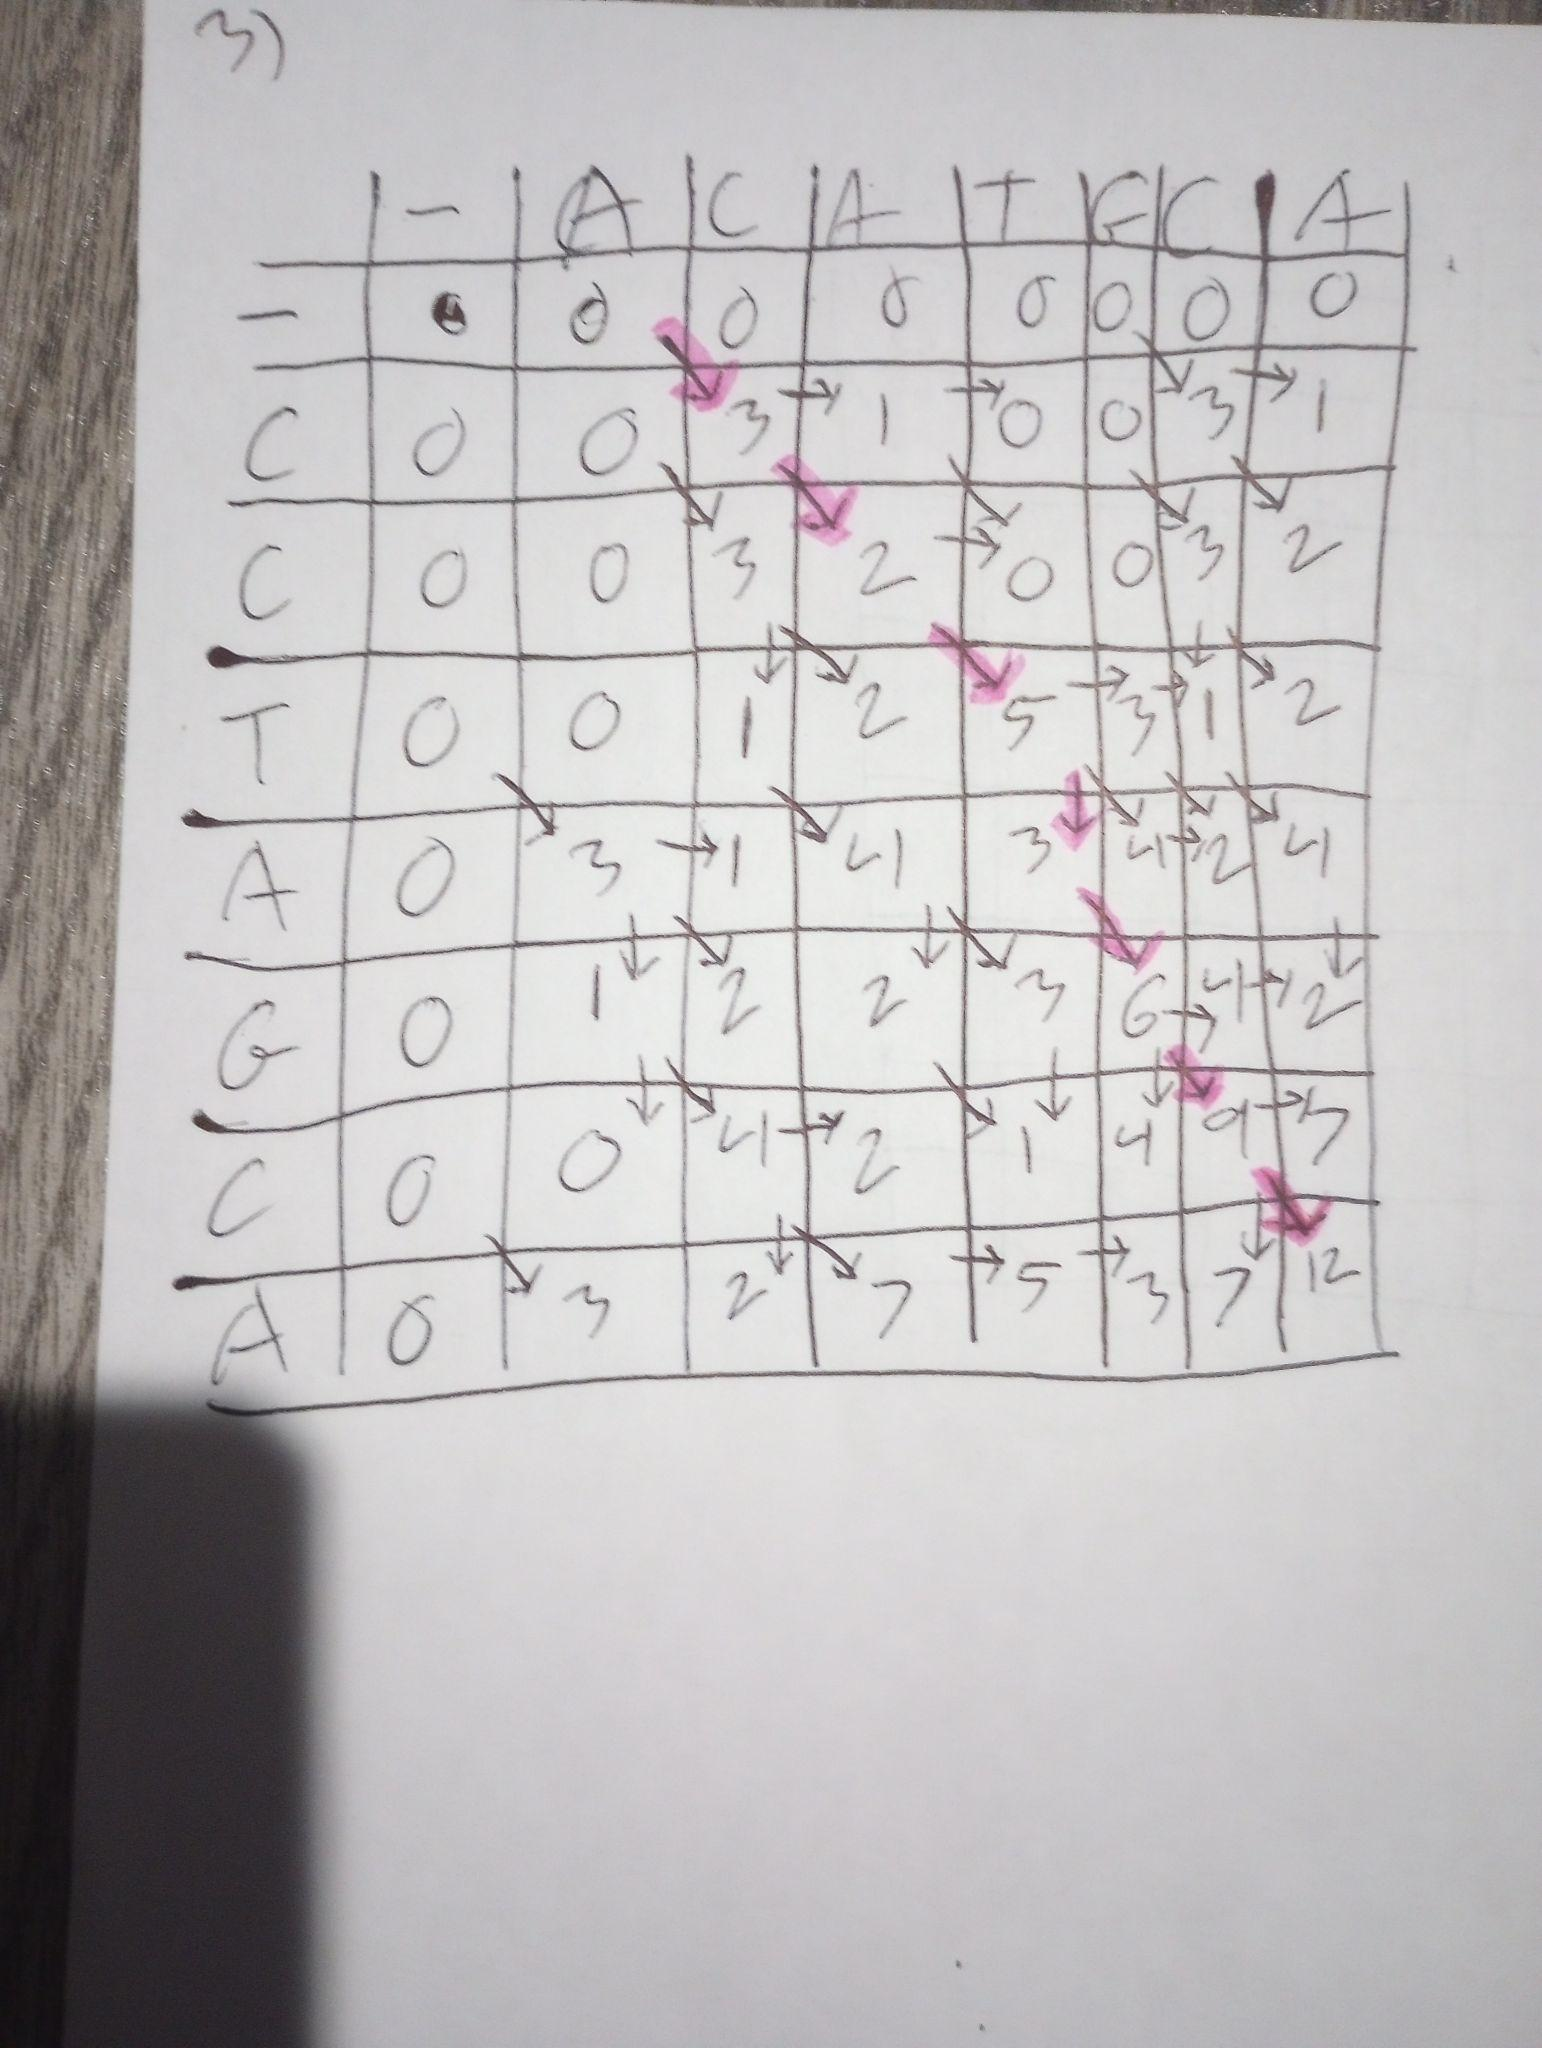 3)
- A C A T G C A
- 0 0 0 0 0 0 0 0
C 0 0 3 → 1 → 0 0 3 → 1
C 0 0 3 2 → 0 0 3 2
T 0 0 1 2 5 → 3 → 1 2
A 0 3 → 1 4 3 4 → 2 4
G 0 1 2 2 3 6 → 4 → 2
C 0 0 4 → 2 1 4 9 → 7
A 0 3 2 7 → 5 → 3 7 12